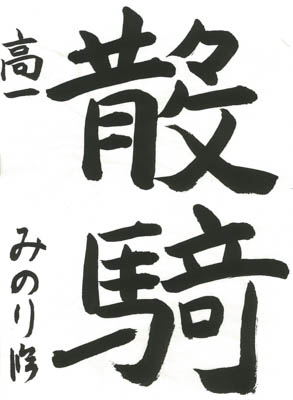 散騎
高一
みのり臨